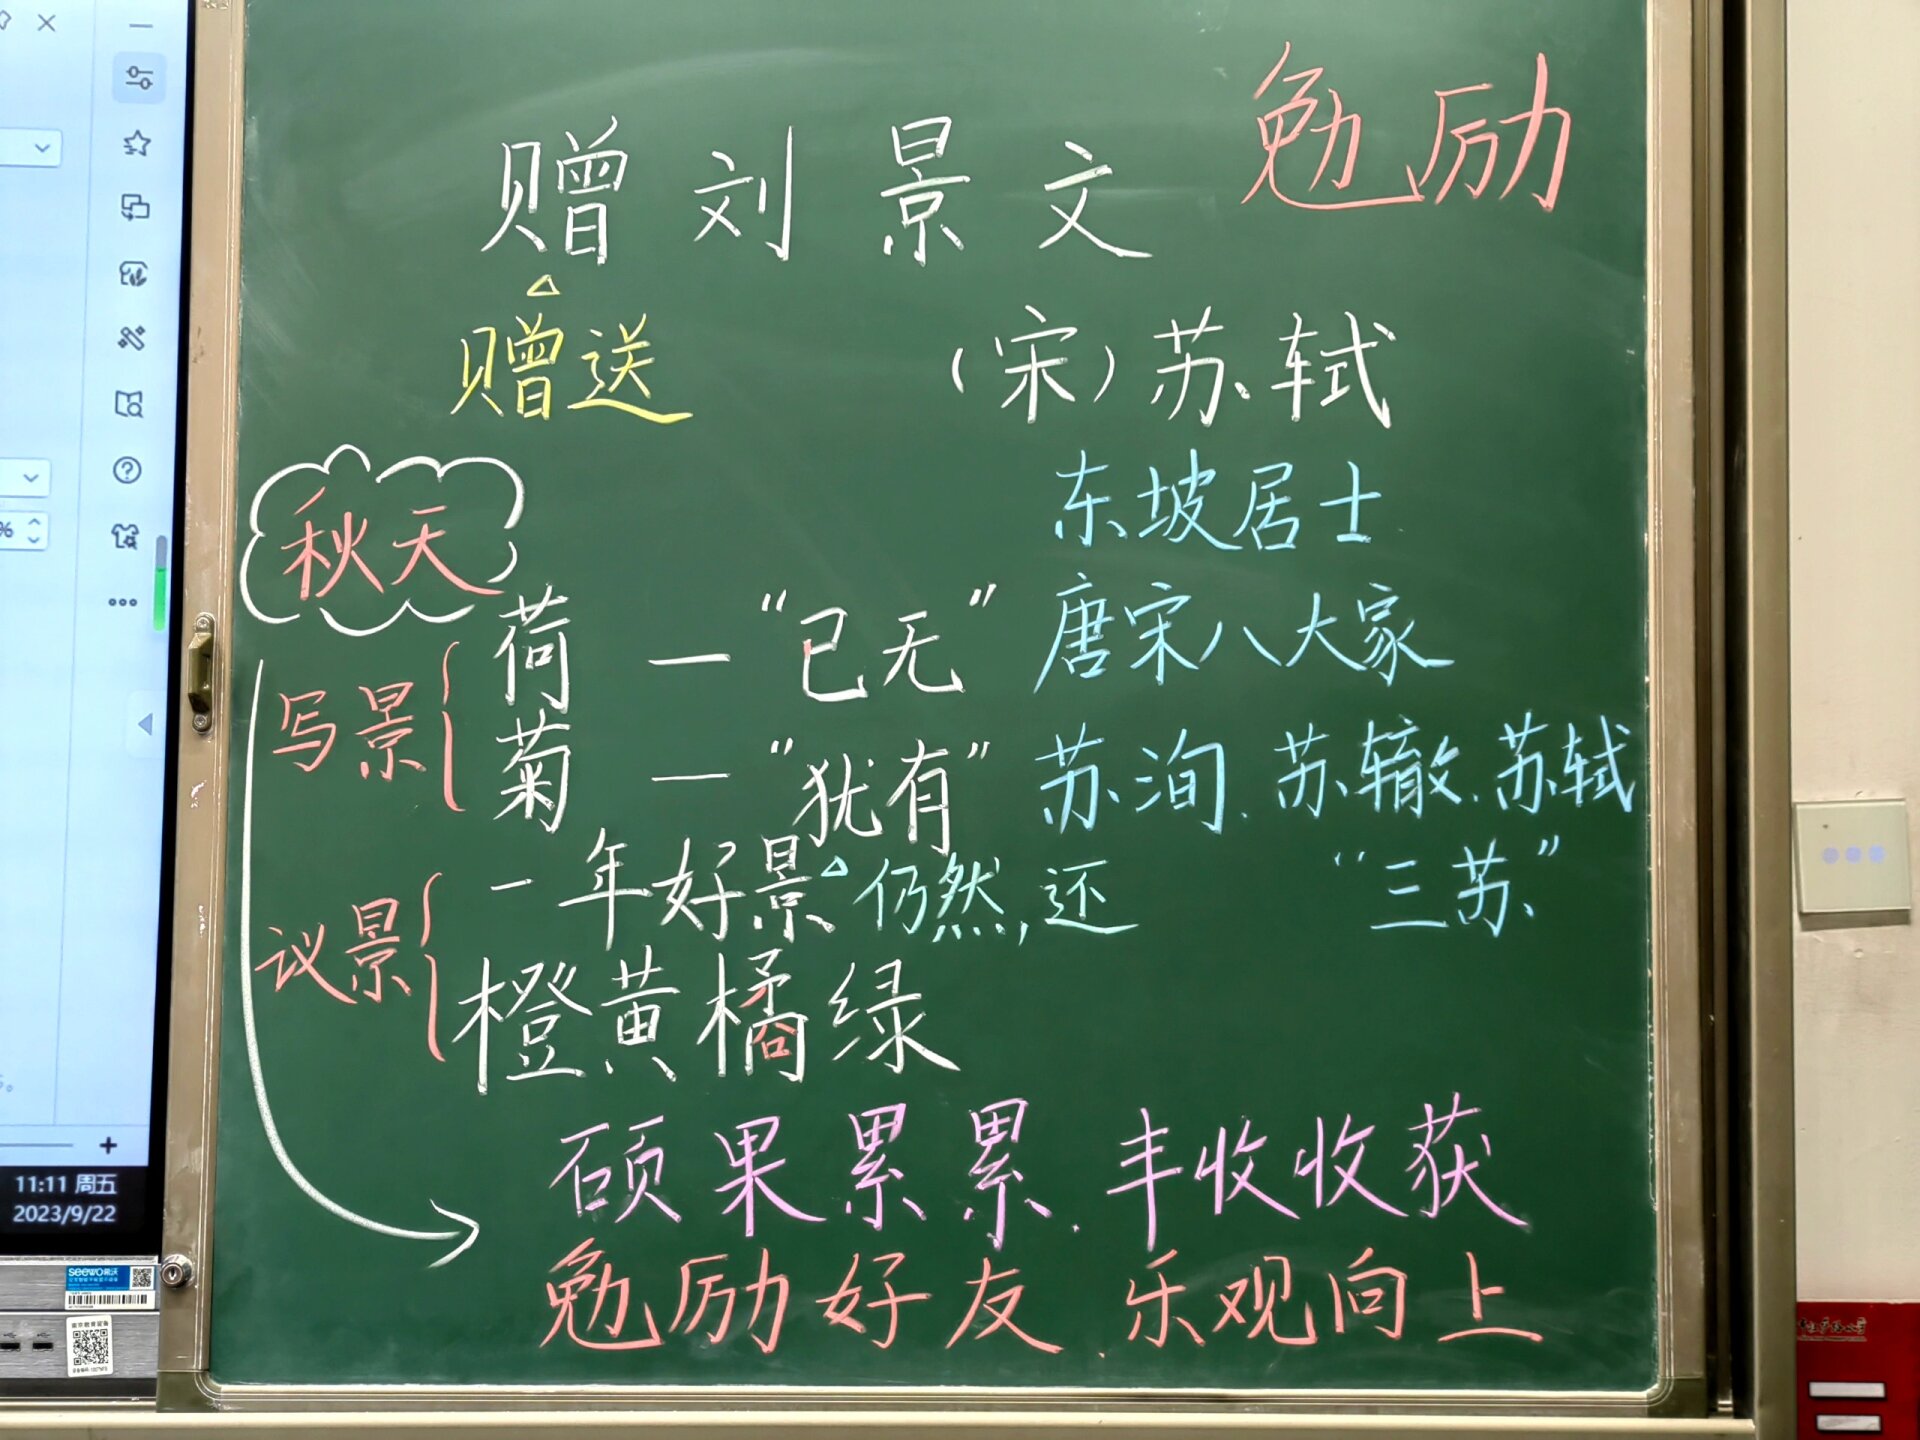 赠刘景文 勉励
赠送 (宋)苏轼
东坡居士
秋天
荷 — “已无” 唐宋八大家
写景
菊 — “犹有” 苏洵.苏辙.苏轼
一年好景 仍然,还 “三苏”
议景
橙黄橘绿
硕果累累.丰收收获
勉励好友.乐观向上
%
11:11 周五
2023/9/22
seewo希沃